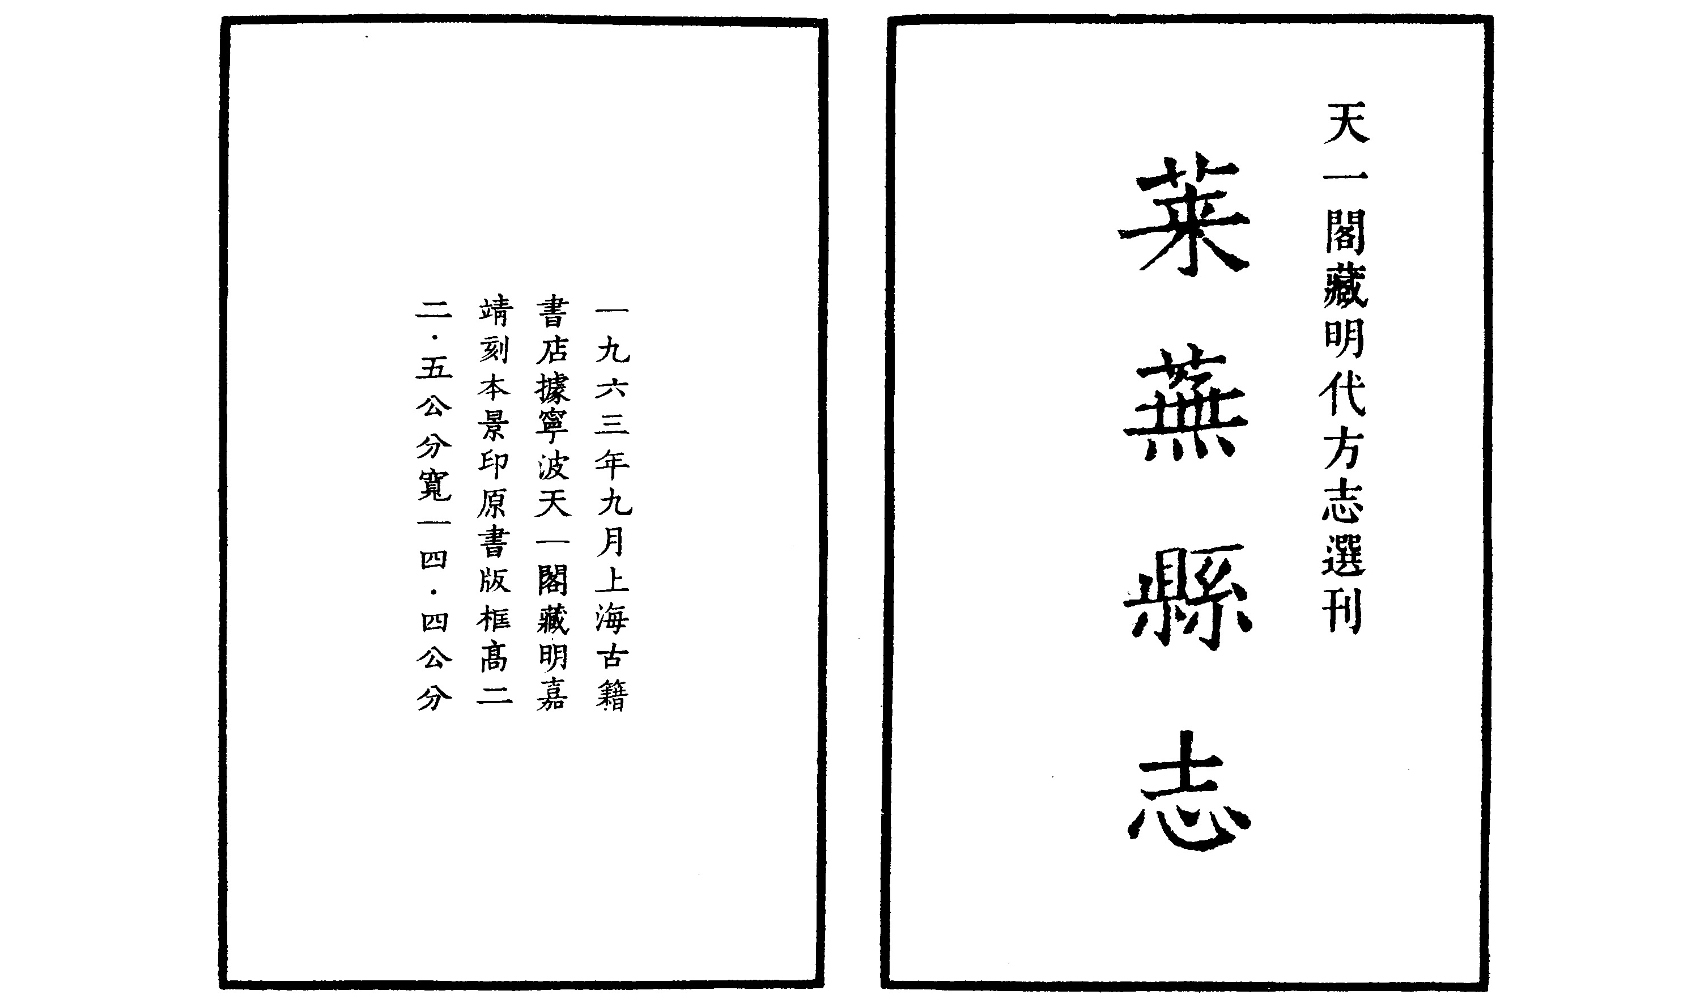 天一閣藏明代方志選刊
萊蕪縣志
一九六三年九月上海古籍
書店據寧波天一閣藏明嘉
靖刻本景印原書版框高二
二·五公分寬一四·四公分